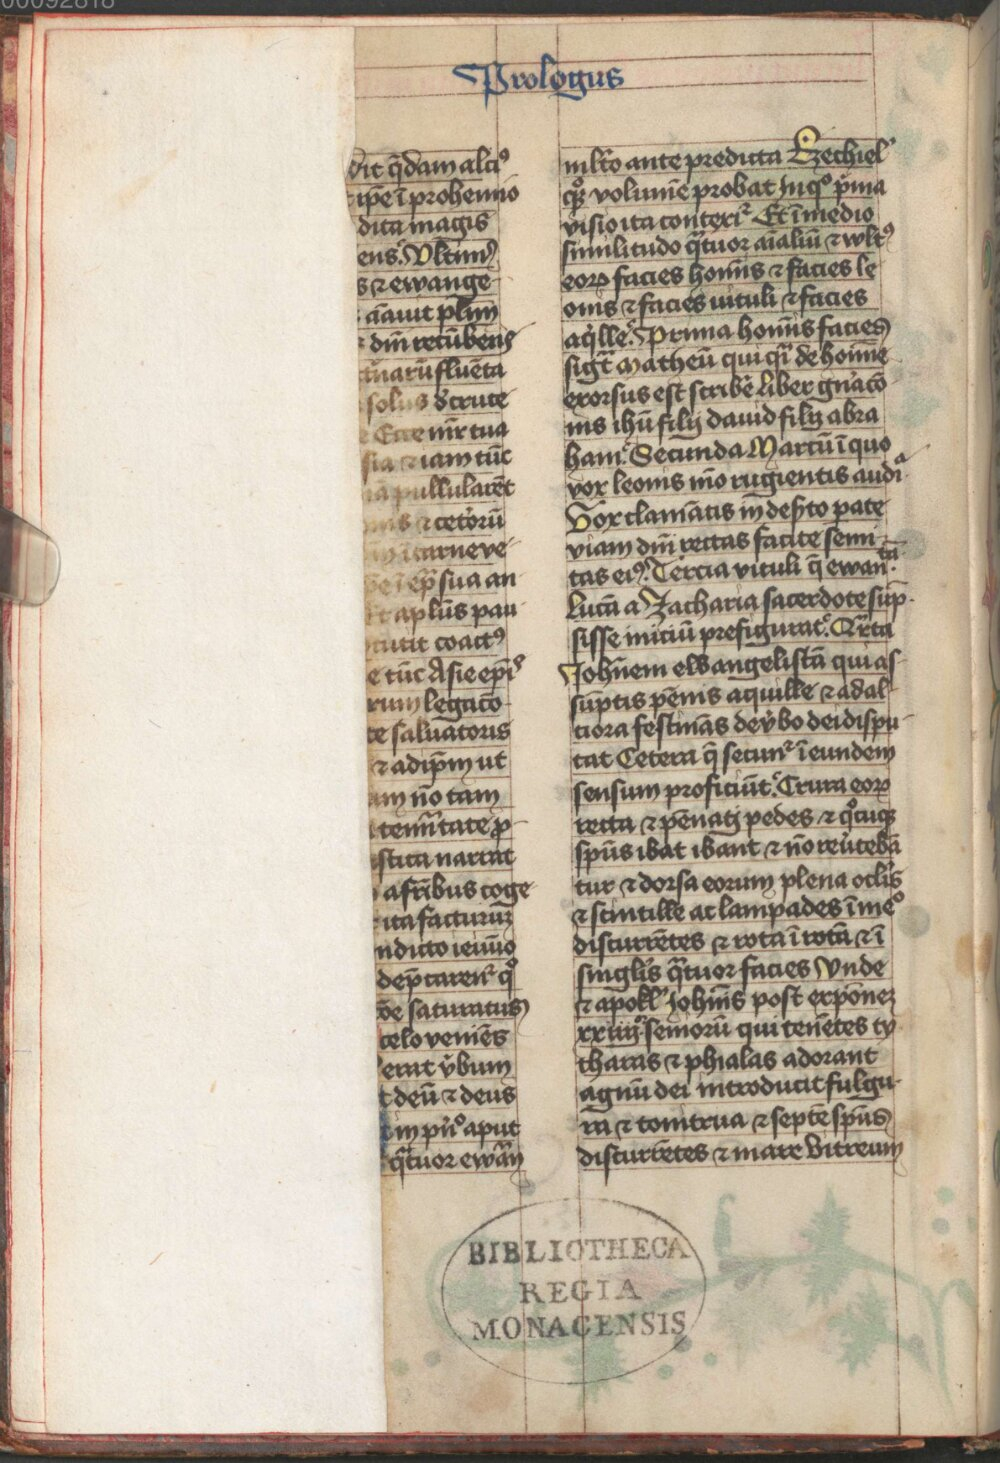 00092818
Prologus
dit q̄dam alci⁹
ip̄e ī prohemio
dita magis
ens. Vltim⁹
s ⁊ ewange
amauit plim̄
dn̄i recūbens
tiuarū fluēta
solus
Ecce mr̄ tua
sia ⁊ iam tūc
pullularēt
⁊ cetorū
carne ve
ep̄ sua an
ap̄lus pau
coact⁹
e tūc Asie ep̄i
rum legaco
te saluatoris
⁊ adip̄m ut
am nō tam
temītate p̄
stica narrat
a fr̄ibus coge
ita facturum
indicto ieiunio
dep̄carent̄ qͦ
saturatus
celo veniēs
erat v̄bum
t deū ⁊ deus
in pn̄ᵒ aput
q̄tuor ewan̄
mlto ante predicta Ezechiel
qꝫ volumē probat In qᵒ p̄ma
visio ita contexiͭ Et ī medio
similitudo q̄tuor aīaliū ⁊ wlt⁹
eoꝝ facies homīs ⁊ facies le
onis ⁊ facies uituli ⁊ facies
aq̄lle. Prima homīs facies
sigt̄ Matheū qui qͣ de homīne
exorsus est scribe Liber gn̄aco
nis ihū filij dauid filij abra
ham. Secunda Marcū ī quo
vox leonis in ꝼmo rugientis audiͭ
Vox clamātis in deſ̄to pate
viam dn̄i rectas facite semi
tas ei⁹. Tercia vituli q̄ ewanᵗᵃ
Lucā a Zacharia sacerdote sūp
sisse iniciū prefigurat. Qͣrta
John̄em ewangelistā qui as
sūptis pēnis aquille ⁊ ad al
ciora festinās de v̄bo dei dispu
tat Cetera q̄ secunt̄ ī eundem
sensum proficiūt. Crura eoꝝ
recta ⁊ pēnati pedes ⁊ qͦcūqꝫ
sp̄us ibat ibant ⁊ nō reūtebā
tur ⁊ dorsa eorum plena oclis
⁊ scintille ac lampades ī meᵒ
discurrētes ⁊ rota ī rota ⁊ ī
singlis q̄tuor facies Vnde
⁊ apoll̄ Johīs post exponeꝫ
xxiiij seniorū qui tenētes cy
tharas ⁊ phialas adorant
agnū dei introducit fulgu
ra ⁊ tonitrua ⁊ septē sp̄us
discurrētes ⁊ mare vitreum
BIBLIOTHECA
REGIA
MONACENSIS